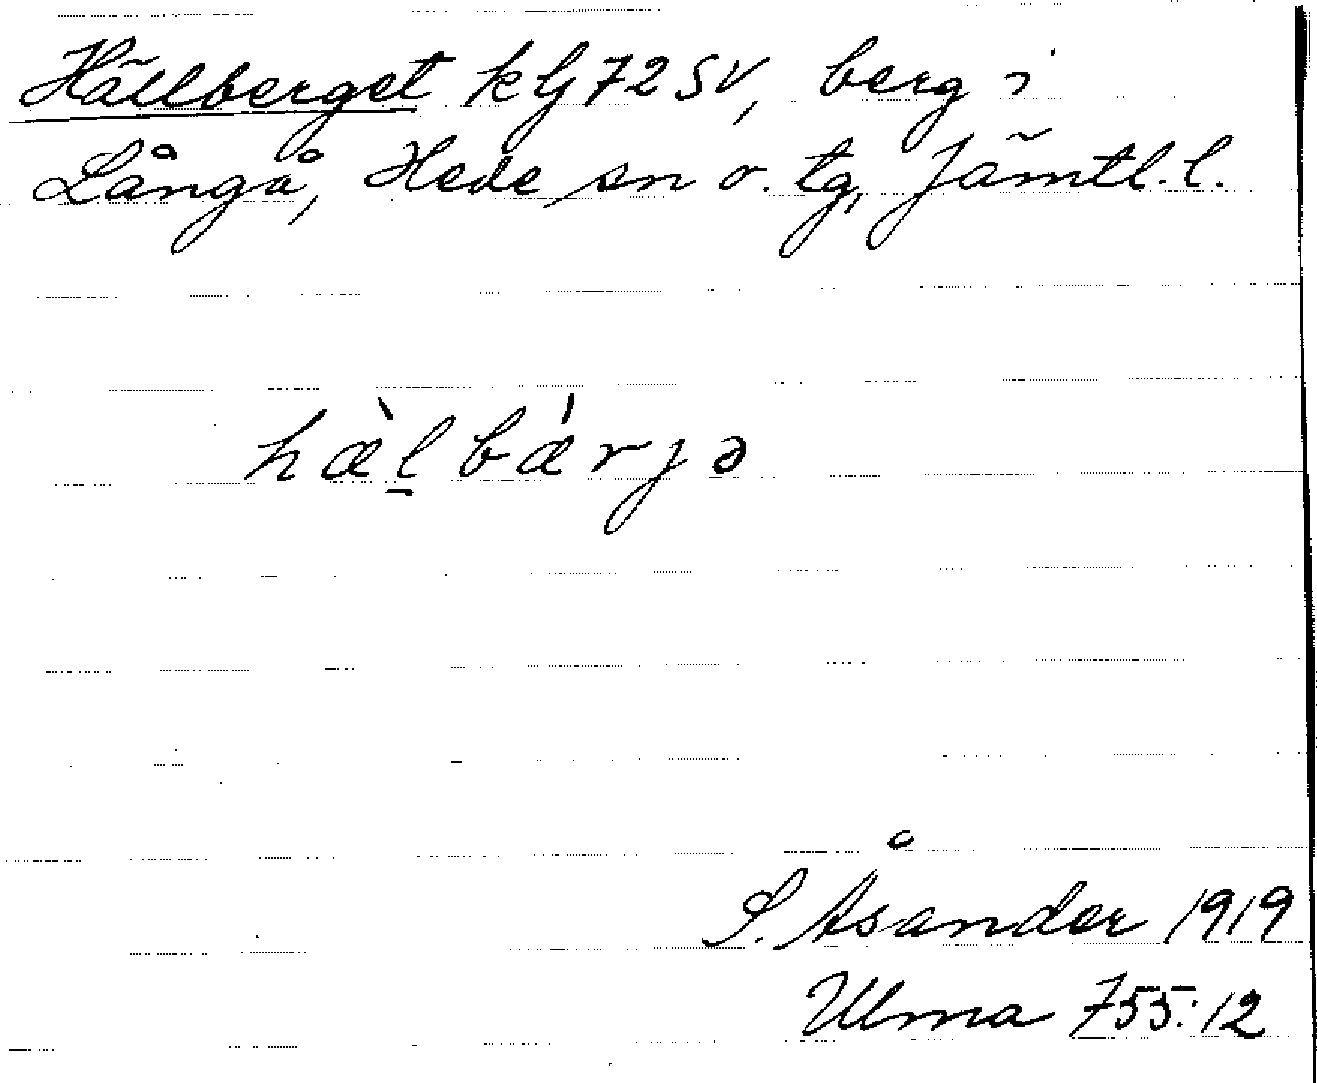 Hällberget kbj 72 SV, berg i
Långå, Hede sn o. tg, Jämtl. l.
hæ̀l̠bárjə
S. Åsander 1919
Ulma 755:12